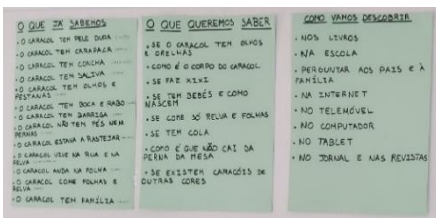 O QUE JÁ SABEMOS
• O CARACOL TEM PELE DURA
• O CARACOL TEM CARAPAÇA
• O CARACOL TEM CONCHA
• O CARACOL TEM SALIVA
• O CARACOL TEM OLHOS E
PESTANAS
• O CARACOL TEM BOCA E RABO
• O CARACOL TEM BARRIGA
• O CARACOL NÃO TEM PÉS NEM
PERNAS
• O CARACOL ESTAVA A RASTEJAR
• O CARACOL VIVE NA RUA E NA
RELVA
• O CARACOL ANDA NA FOLHA
• O CARACOL COME FOLHAS E
RELVA
• O CARACOL TEM FAMÍLIA
O QUE QUEREMOS SABER
• SE O CARACOL TEM OLHOS
E ORELHAS
• COMO É O CORPO DO CARACOL
• SE FAZ XIXI
• SE TEM BEBÉS E COMO
NASCEM
• SE COME SÓ RELVA E FOLHAS
• SE TEM COLA
• COMO É QUE NÃO CAI DA
PERNA DA MESA
• SE EXISTEM CARACÓIS DE
OUTRAS CORES
COMO VAMOS DESCOBRIR
• NOS LIVROS
• NA ESCOLA
• PERGUNTAR AOS PAIS E À
FAMÍLIA
• NA INTERNET
• NO TELEMÓVEL
• NO COMPUTADOR
• NO TABLET
• NO JORNAL E NAS REVISTAS